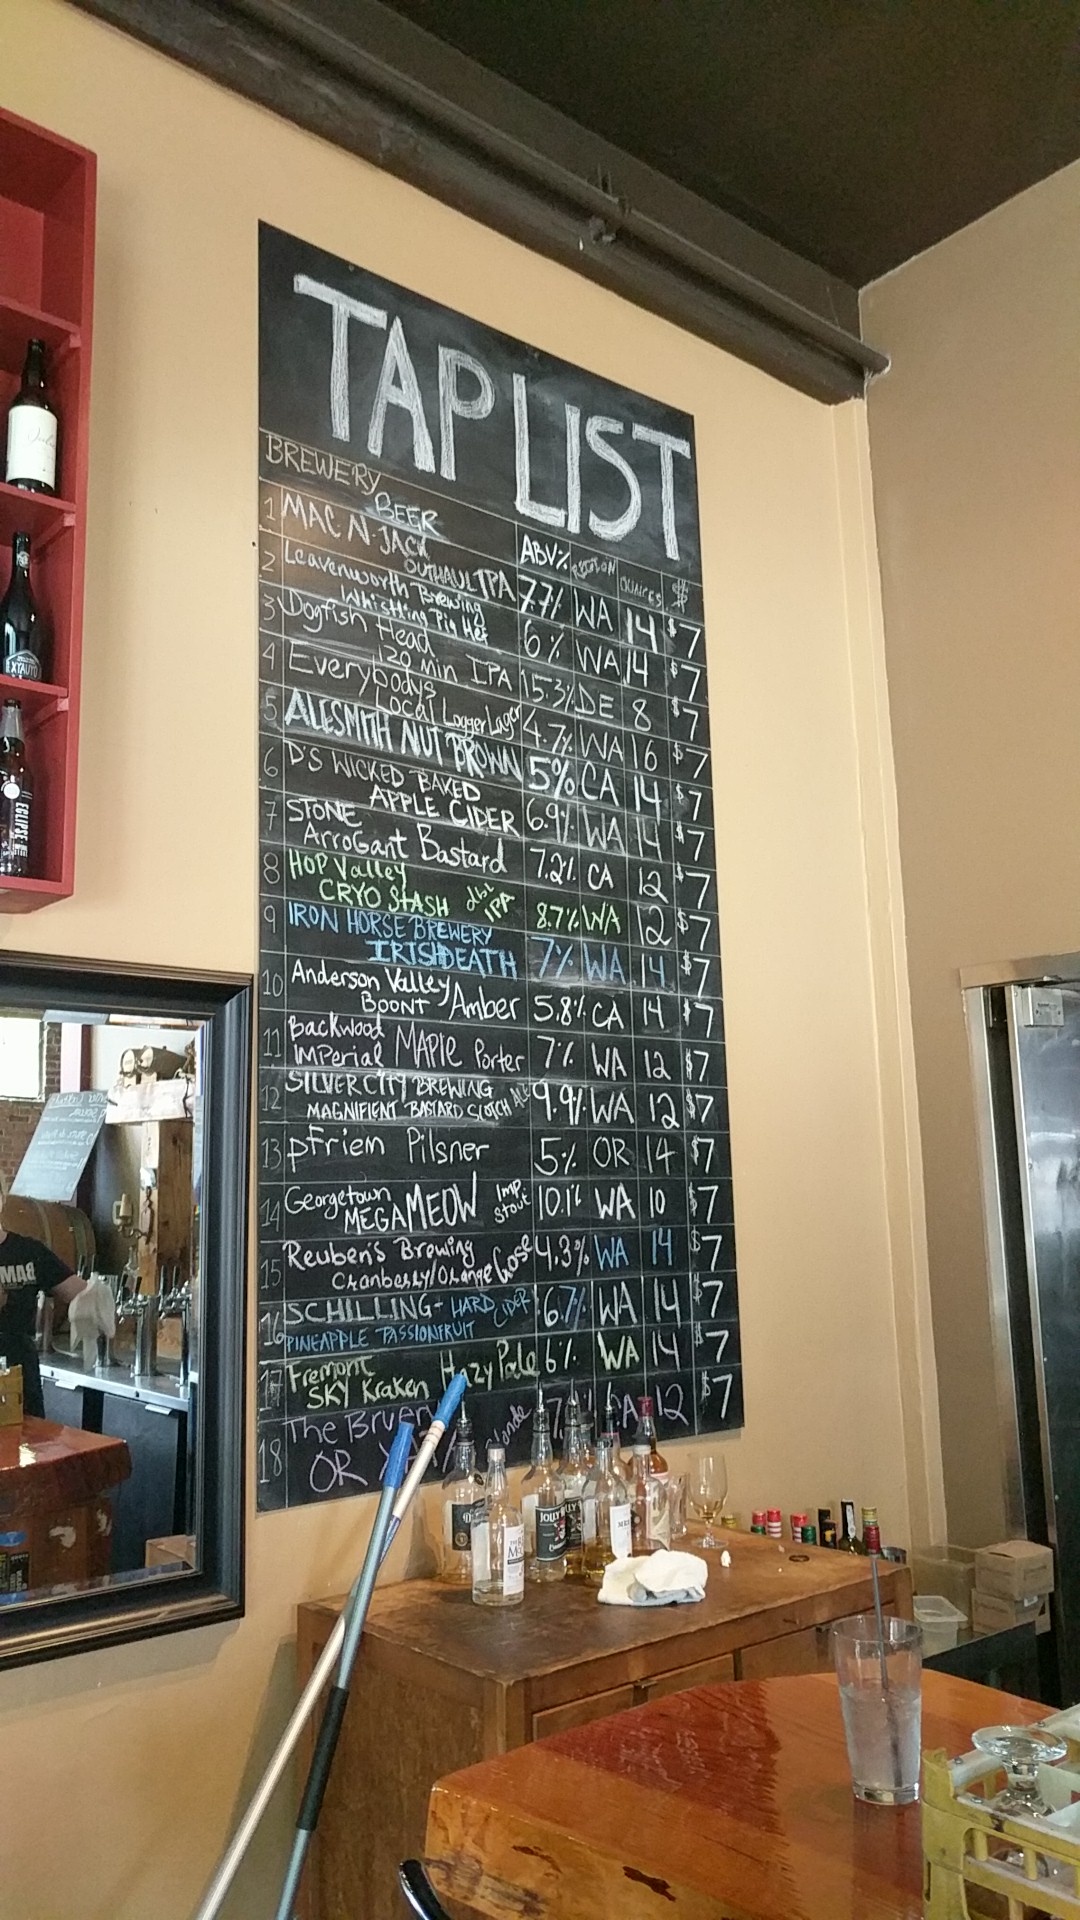 TAP LIST
BREWERY BEER ABV% REGION OUNCES $
1 MAC-N-JACK OUTHAUL IPA 7.7% WA 14 $7
2 Leavenworth Brewing Whistling Pig Hef 6% WA 14 $7
3 Dogfish Head 120 Min IPA 15.3% DE 8 $7
4 Everybodys Local Logger Lager 4.7% WA 16 $7
5 ALESMITH NUT BROWN 5% CA 14 $7
6 D'S WICKED BAKED APPLE CIDER 6.9% WA 14 $7
7 STONE ArroGant Bastard 7.2% CA 12 $7
8 HOP Valley CRYO STASH dbl IPA 8.7% WA 12 $7
9 IRON HORSE BREWERY IRISHDEATH 7% WA 14 $7
10 Anderson Valley BOONT Amber 5.8% CA 14 $7
11 Backwood Imperial MAPLE Porter 7% WA 12 $7
12 SILVER CITY BREWING MAGNIFIENT BASTARD SCOTCH ALE 9.9% WA 12 $7
13 pFriem Pilsner 5% OR 14 $7
14 Georgetown MEGAMEOW Imp. Stout 10.1% WA 10 $7
15 Reuben's Brewing Cranberry/Orange Gose 4.3% WA 14 $7
16 SCHILLING - HARD CIDER PINEAPPLE PASSIONFRUIT 6.7% WA 14 $7
17 Fremont SKY Kraken Hazy Pale 6% WA 14 $7
18 The Bruery OR Blonde 12 $7
ECLIPSE